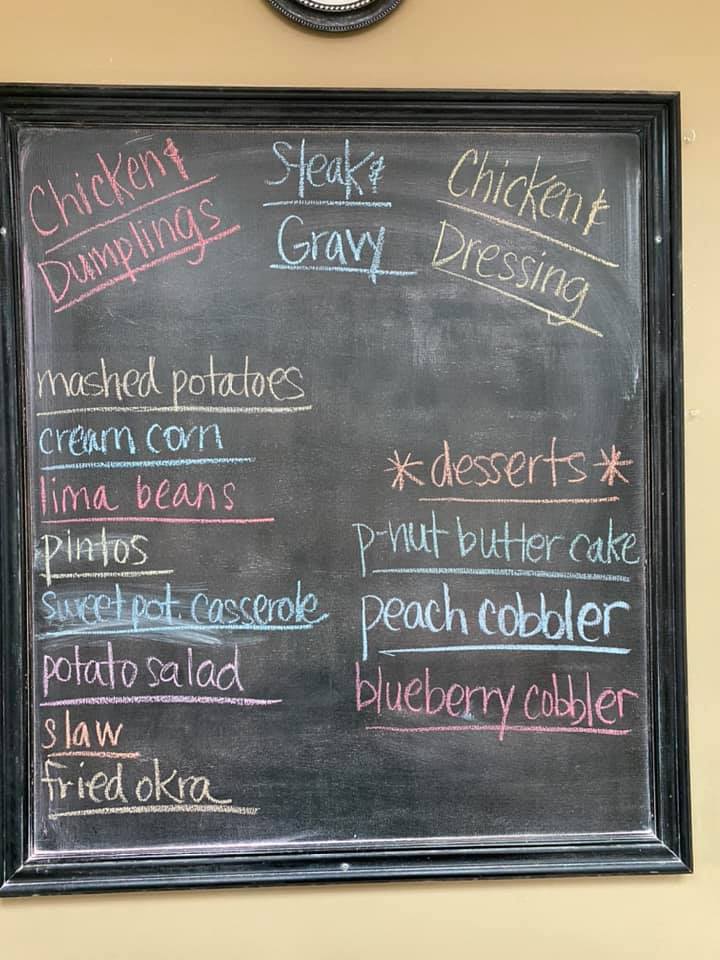 Chicken &
Dumplings
Steak &
Gravy
Chicken &
Dressing
mashed potatoes
cream corn
lima beans
pintos
sweet pot. casserole
potato salad
slaw
fried okra
* desserts *
p-nut butter cake
peach cobbler
blueberry cobbler